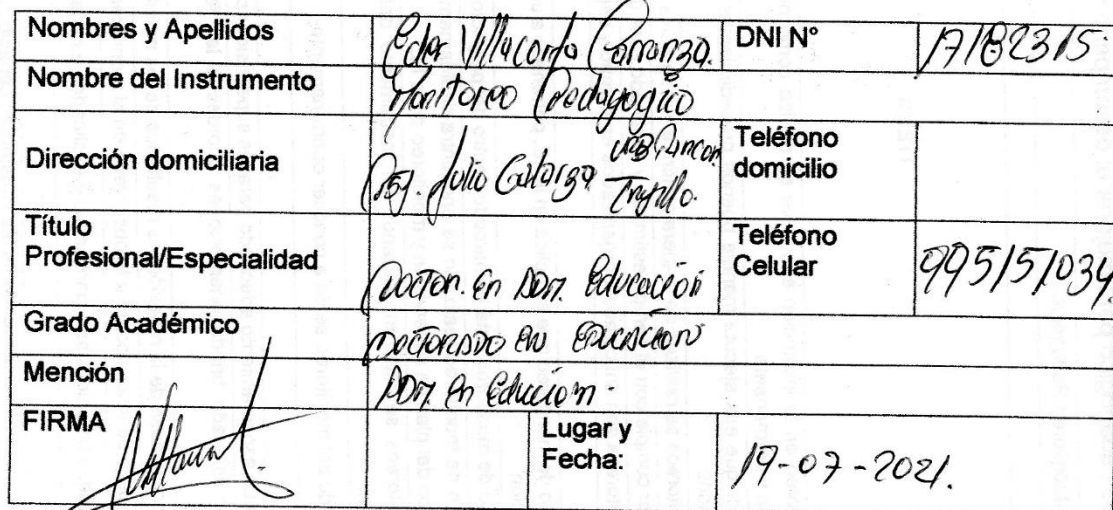 Nombres y Apellidos Eder Villacorta Carranza. DNI N° 17182315
Nombre del Instrumento Monitoreo Pedagogico
Dirección domiciliaria Julio Trujillo. Teléfono domicilio
Título Profesional/Especialidad Doctor. En ADM. Educación Teléfono Celular 995151034.
Grado Académico DOCTORADO EN EDUCACION
Mención ADM. En
FIRMA Lugar y Fecha: 19-07-2021.